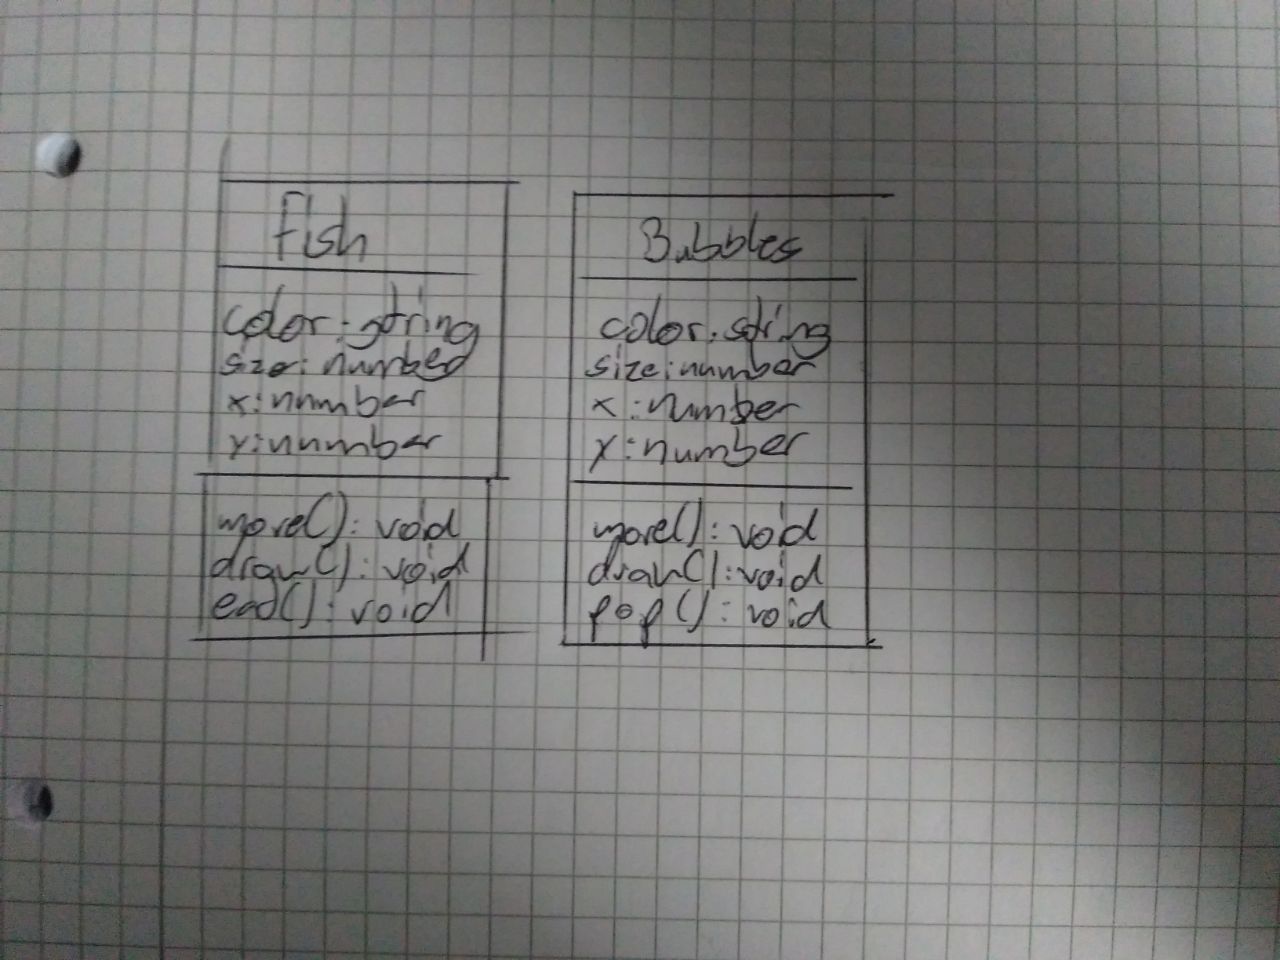 Fish
color: string
size: number
x: number
y: number
move(): void
draw(): void
ead(): void
Bubbles
color: string
size: number
x: number
y: number
move(): void
draw(): void
pop(): void